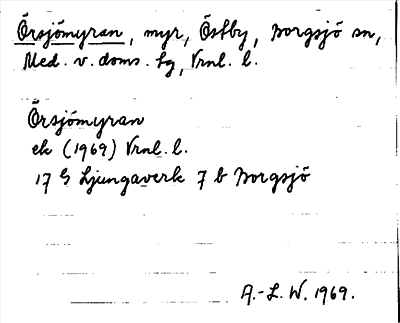 Örsjömyran, myr, Östby, Borgsjö sn,
Med. v. doms. tg, Vrnl. l.
Örsjömyran
ek (1969) Vrnl. l.
17 G Ljungaverk 7 b Borgsjö
A.-L. W. 1969.